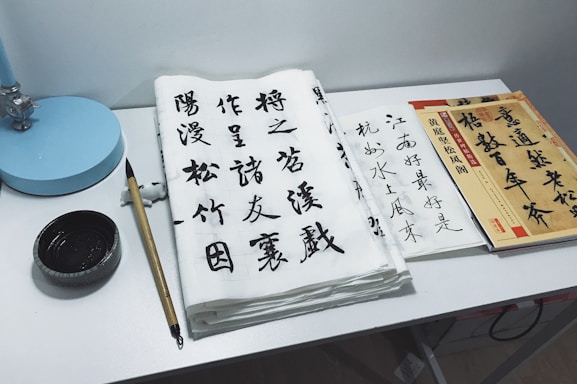 将之苕溪戲
作呈諸友襄
陽漫松竹因
江南好最好是
水上風来
意適然老松
梧數百年斧
黄庭坚松风阁